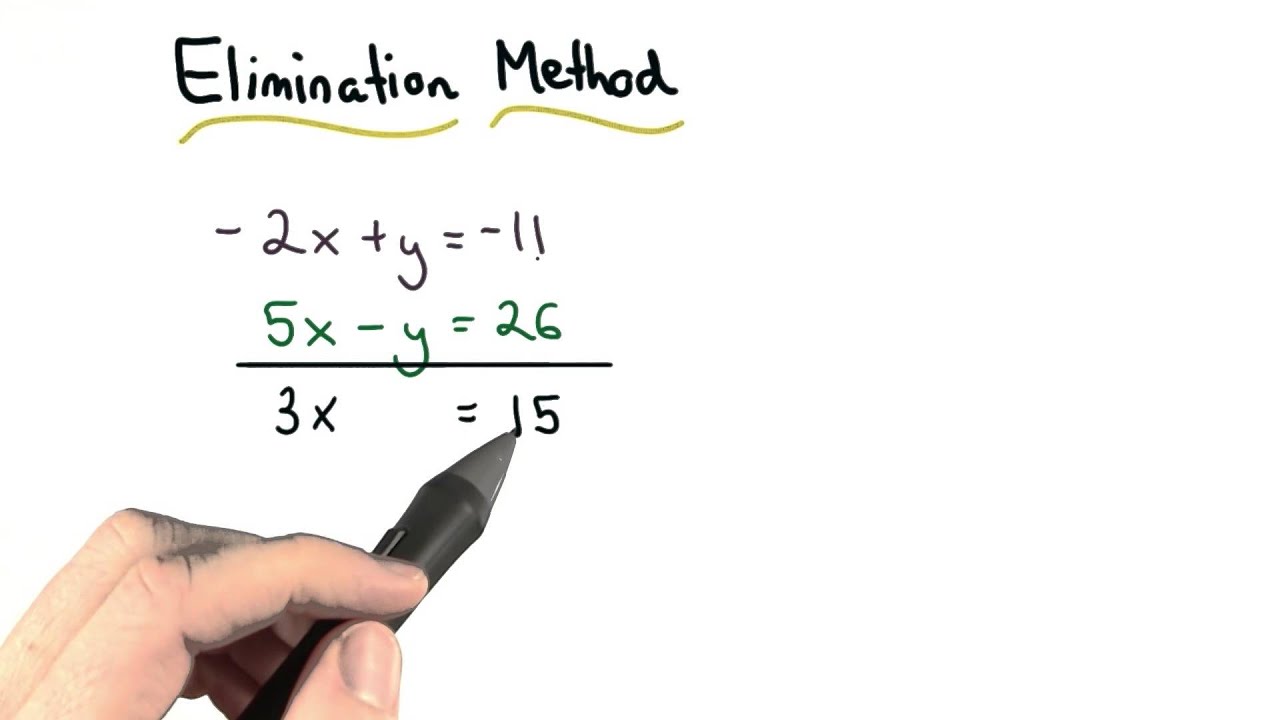 Elimination Method
- 2x + y = -11
5x - y = 26
3x = 15